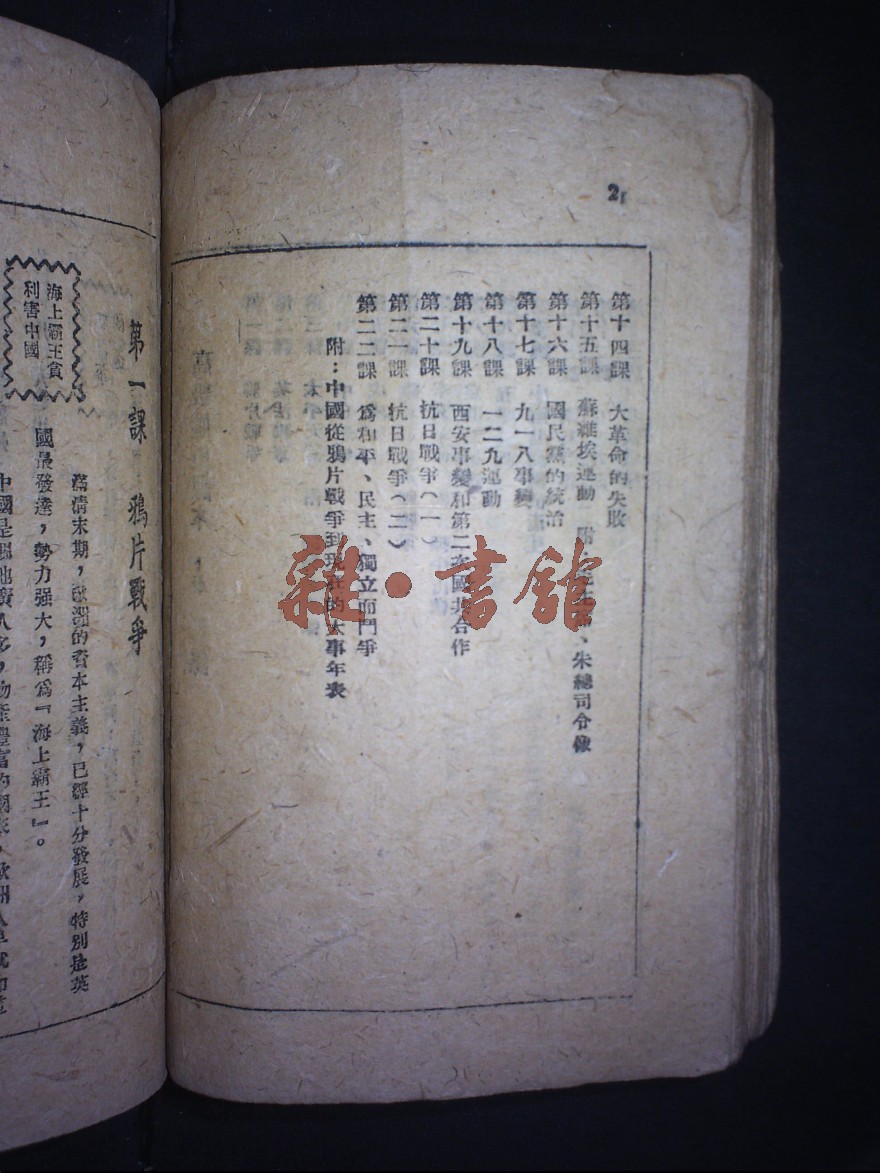 21
第十四課 大革命的失敗
第十五課 蘇維埃運動 附 、朱總司令像
第十六課 國民黨的統治
第十七課 九一八事變
第十八課 一二九運動
第十九課 西安事變和第二次國共合作
第二十課 抗日戰爭(一)
第二一課 抗日戰爭(二)
第二二課 爲和平、民主、獨立而鬥爭
附:中國從鴉片戰爭到現在的大事年表
雜·書館
第一課 鴉片戰爭
海上霸王貪
利害中國
滿清末期,歐洲的資本主義,已經十分發展,特別是英
國最發達,勢力强大,稱爲『海上霸王』。
中國是個地廣人多,物產豐富的國家,歐洲人早就知道